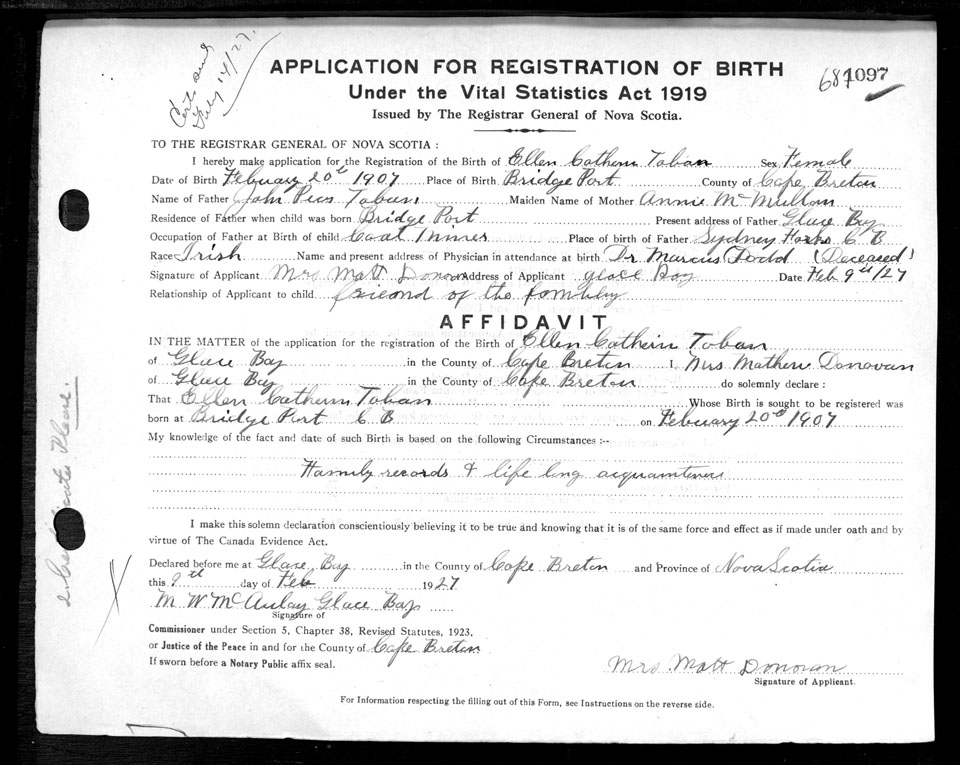 Certs sent
July 14/27.
APPLICATION FOR REGISTRATION OF BIRTH
681097
Under the Vital Statistics Act 1919
Issued by The Registrar General of Nova Scotia.
TO THE REGISTRAR GENERAL OF NOVA SCOTIA :
I hereby make application for the Registration of the Birth of Ellen Cathern Toban Sex Female
Date of Birth Febuary 20th 1907 Place of Birth Bridge Port County of Cape Breton
Name of Father John Pius Toban Maiden Name of Mother Annie McMullan
Residence of Father when child was born Bridge Port Present address of Father Glace Bay
Occupation of Father at Birth of child Coal Miner Place of birth of Father Sydney C B
Race Irish Name and present address of Physician in attendance at birth Dr Marcus Dodd (Deceased)
Signature of Applicant Mrs Matt Donovan Address of Applicant glace Bay Date Feb 9th/27
Relationship of Applicant to child freiend of the fambley
AFFIDAVIT
IN THE MATTER of the application for the registration of the Birth of Ellen Cathern Toban
of Glace Bay in the County of Cape Breton I, Mrs Mathew Donovan
of Glace Bay in the County of Cape Breton do solemnly declare :
That Ellen Cathern Toban Whose Birth is sought to be registered was
born at Bridge Port C B on Febuary 20th 1907
My knowledge of the fact and date of such Birth is based on the following Circumstances :--
Family records & life long
I make this solemn declaration conscientiously believing it to be true and knowing that it is of the same force and effect as if made under oath and by
virtue of The Canada Evidence Act.
Declared before me at Glace Bay in the County of Cape Breton and Province of Nova Scotia
this 9th day of Feb 1927
M W McAulay Glace Bay
Signature of
Commissioner under Section 5, Chapter 38, Revised Statutes, 1923,
or Justice of the Peace in and for the County of Cape Breton
If sworn before a Notary Public affix seal.
Mrs. Matt Donovan
Signature of Applicant.
For Information respecting the filling out of this Form, see Instructions on the reverse side.
2 Certificates Please.